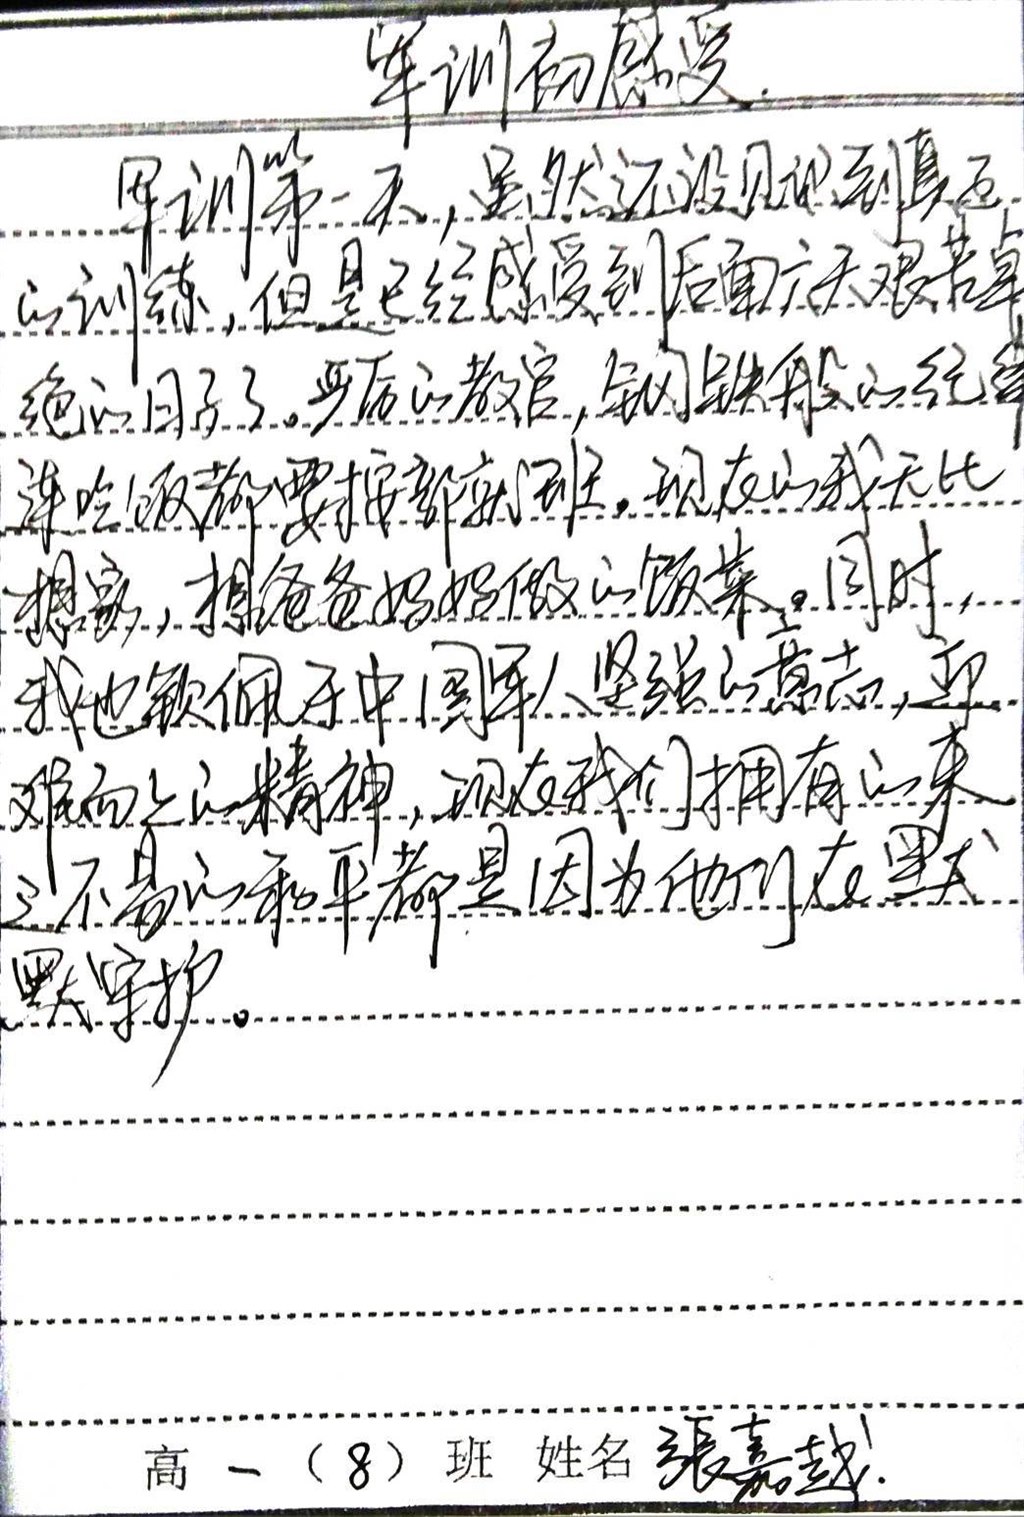 军训初感受.
军训第一天,虽然还没见识到真正
的训练,但是已经感受到后面六天艰苦卓
绝的日子了。严厉的教官,钢铁般的纪律
连吃饭都要按部就班。现在的我无比
想家,想爸爸妈妈做的饭菜。同时,
我也钦佩于中国军人坚强的意志,迎
难而上的精神,现在我们拥有的来
之不易的和平都是因为他们在默
默守护。
高一(8)班 姓名 張嘉越.